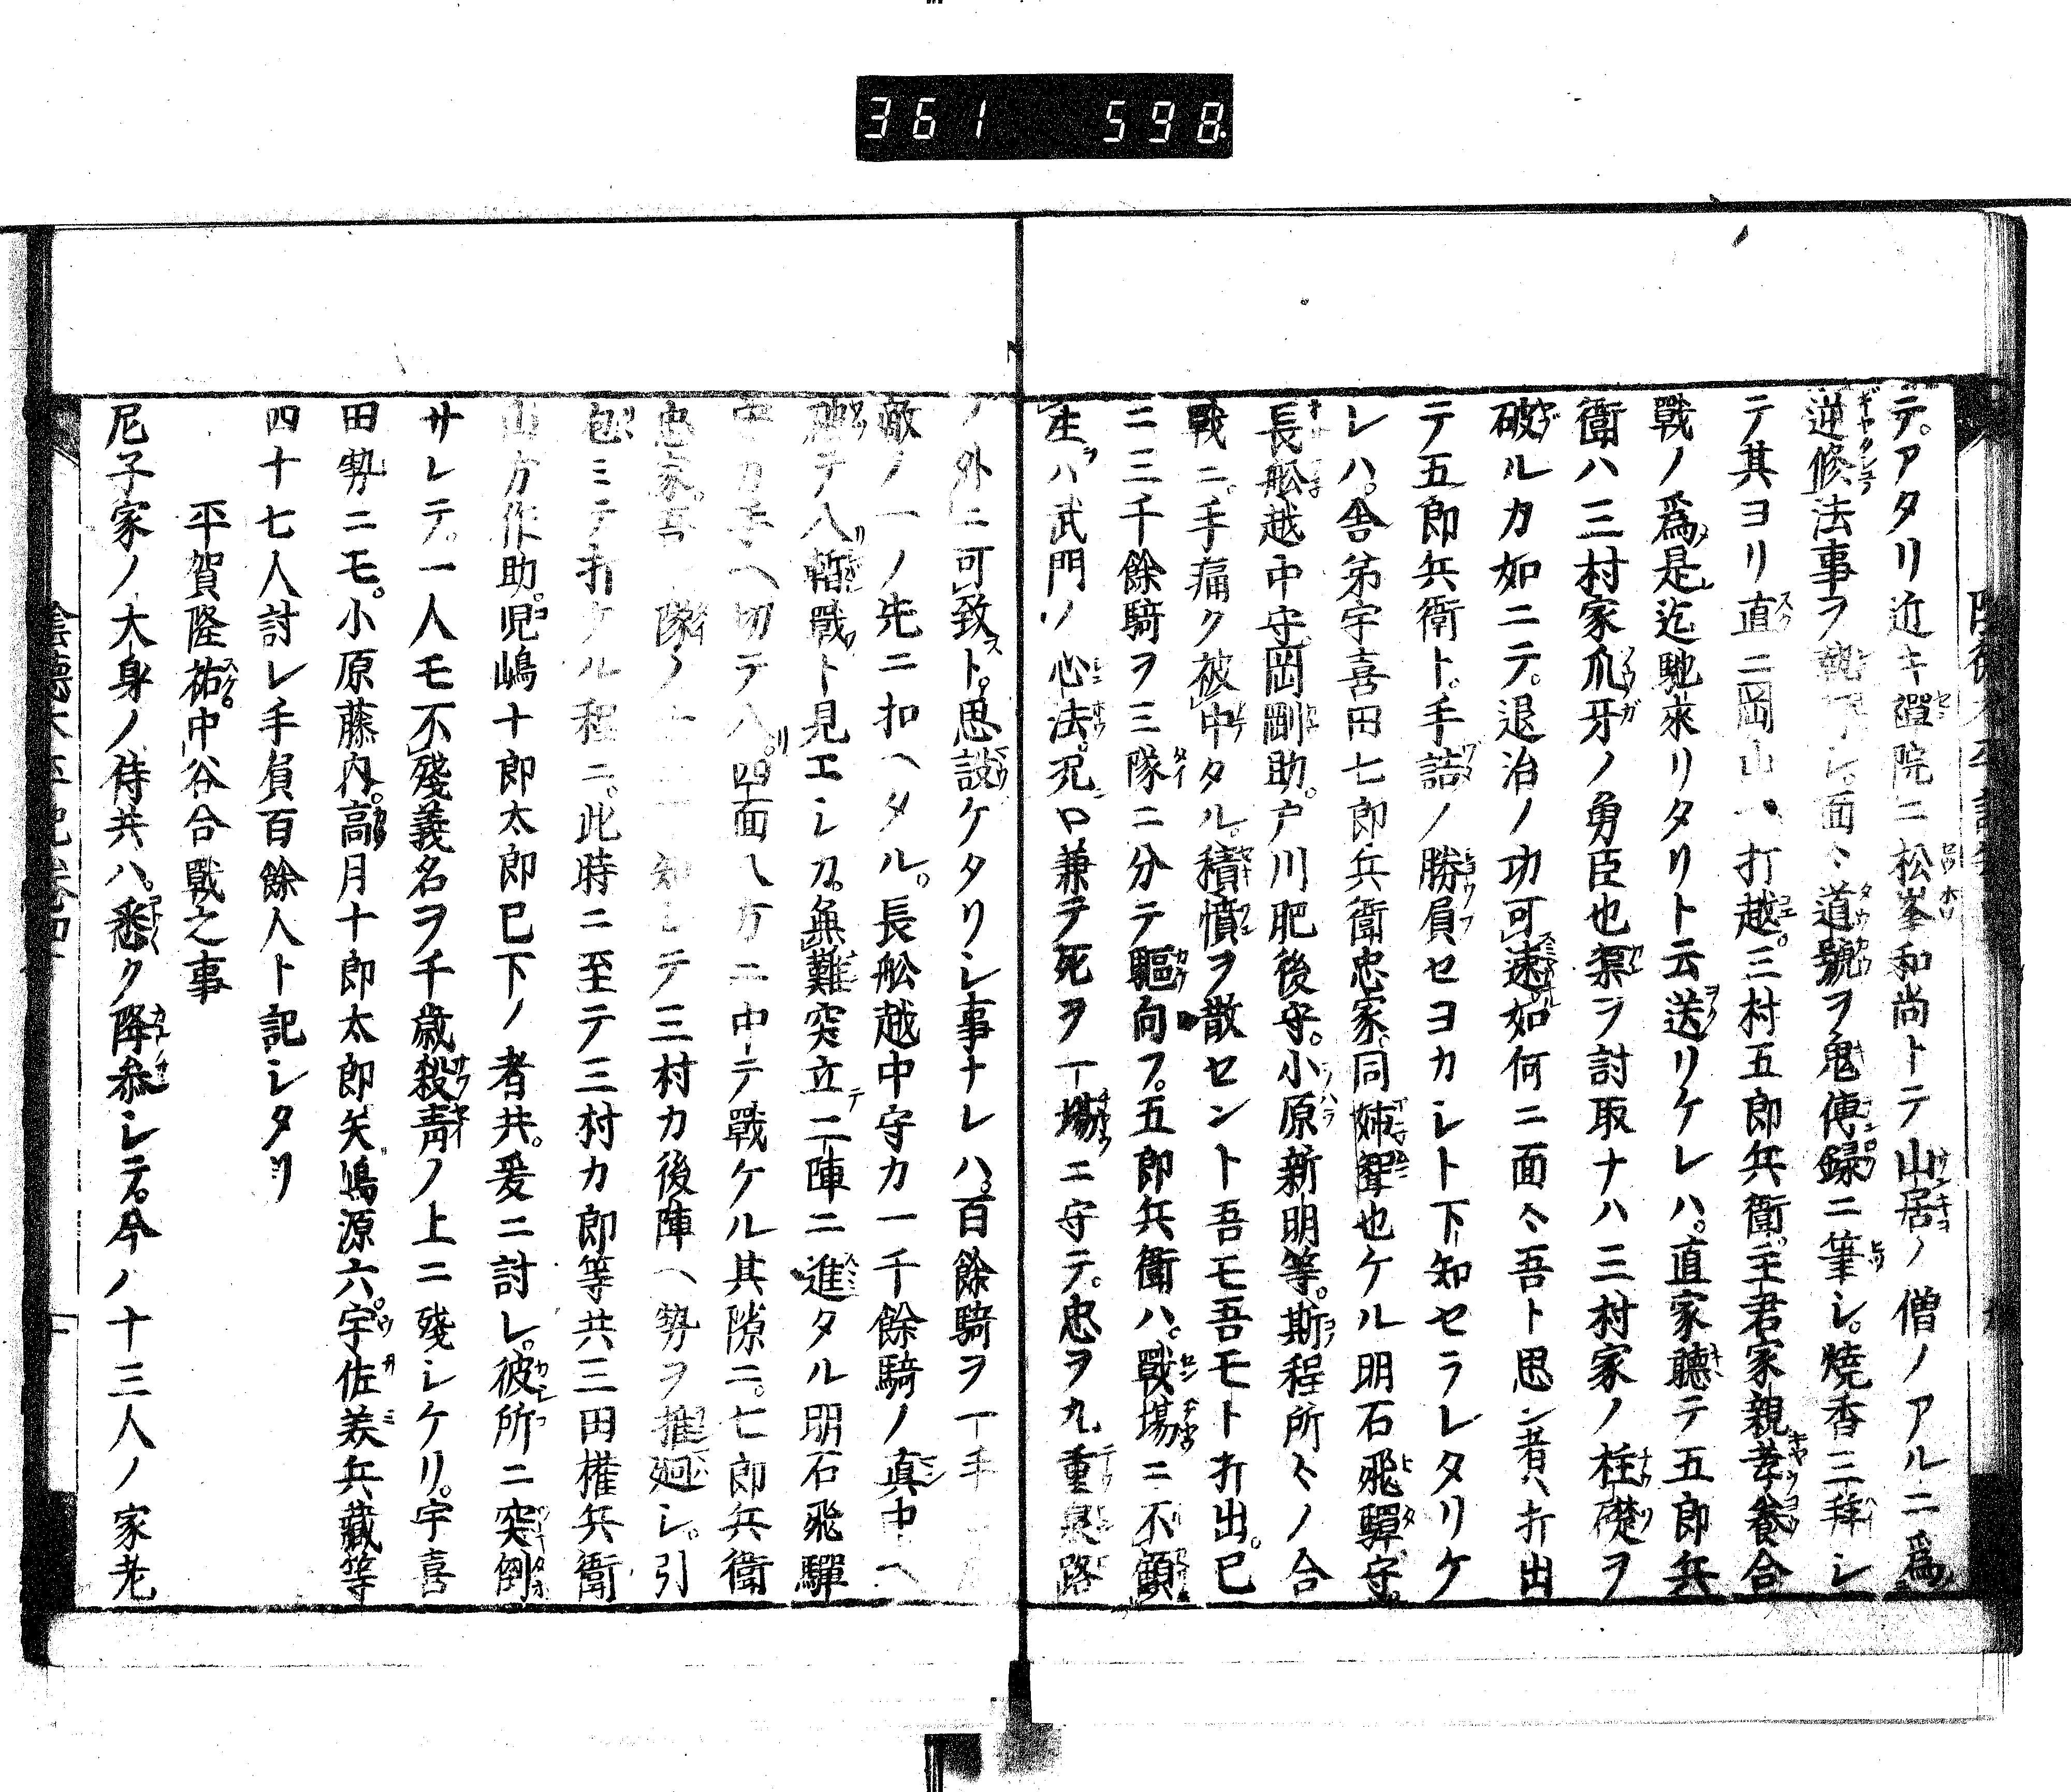 361 598.
テ。アタリ近キ禪院ニ松峯和尚トテ山居ノ僧ノアルニ爲
逆修法事ヲ執行シ。面々道號ヲ鬼傳録ニ筆シ。燒香三拜シ
テ其ヨリ直ニ岡山ヘ打越。三村五郎兵衛。主君家親孝養合
戰ノ爲是迄馳來リタリト云送リケレハ。直家聽テ五郎兵
衛ハ三村家爪牙ノ勇臣也渠ヲ討取ナハ三村家ノ柱礎ヲ
破ルカ如ニテ。退治ノ功可速如何ニ面々吾ト思ン者ハ打出
テ五郎兵衛ト。手詰ノ勝負セヨカシト下知セラレタリケ
レハ。舎弟宇喜田七郎兵衛忠家。同姉聟也ケル明石飛驒守。
長舩越中守。岡剛助。戸川肥後守。小原新明等。斯程所々ノ合
戰ニ。手痛ク被中タル。積憤ヲ散セント吾モ吾モト打出。已
ニ三千餘騎ヲ三隊ニ分テ驅向フ。五郎兵衛ハ。戰場ニ不顧
生ハ武門ノ心法。况ロ兼テ死ヲ一場ニ守テ。忠ヲ九重泉路
ノ外ニ可致ト。思設ケタリシ事ナレハ。百餘騎ヲ一手
敵ノ一ノ先ニ扣ヘタル。長舩越中守カ一千餘騎ノ真中ヘ
テ入暫戰ト見エシカ。無難突立二陣ニ進タル明石飛驒
守カ手ヘ切テ入。四面八方ニ中テ戰ケル其隙ニ。七郎兵衛
忠家。吾隊ノ士ニ下知シテ三村カ後陣ヘ勢ヲ推廻シ。引
包ミテ打ケル程ニ。此時ニ至テ三村カ郎等共三田權兵衛
山方作助。児嶋十郎太郎已下ノ者共。爰ニ討レ。彼所ニ突倒
サレテ。一人モ不殘義名ヲ千歳殺靑ノ上ニ殘シケリ。宇喜
田勢ニモ。小原藤内。高月十郎太郎矢嶋源六。宇佐美兵藏等
四十七人討レ手負百餘人ト記シタリ
平賀隆祐。中谷合戰之事
尼子家ノ大身ノ侍共ハ。悉ク降参シテ。今ノ十三人ノ家老